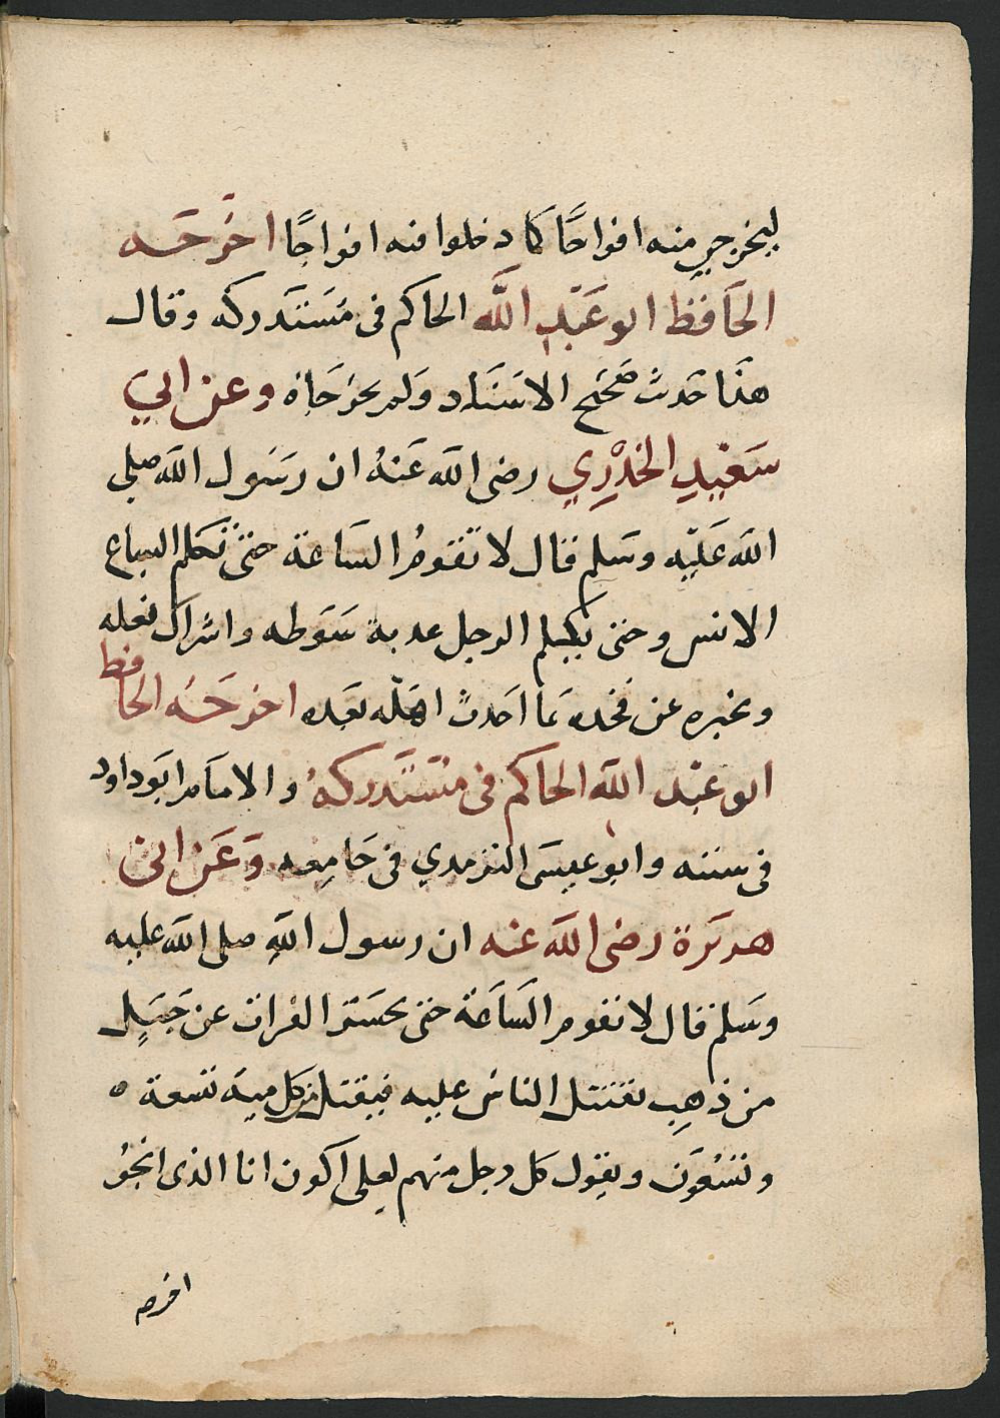 ليخرجن منه افواجًا كما دخلوا فيه افواجًا اخرجه
الحافظ ابو عبد الله الحاكم فى مستدركه وقال
هذا حديث صحيح الاسناد ولم يخرجاه وعن ابي
سعيد الخدري رضى الله عنه ان رسول الله صلى
الله عليه وسلم قال لا تقوم الساعة حتى تكلم السباع
الانس وحتى يكلم الرجل عدبة سوطه واشراك نعله
وتخبره عن فخده بما احدث اهله بعده اخرجه الحافظ
ابو عبد الله الحاكم فى مستدركه والامام ابو داود
فى سننه وابو عيسى الترمدي فى جامعه وعن ابى
هريرة رضى الله عنه ان رسول الله صلى الله عليه
وسلم قال لا تقوم الساعة حتى يحسر الفرات عن جبل
من ذهب يقتتل الناس عليه فيقتل من كل مية تسعة ٥
وتسعون ويقول كل رجل منهم لعلى اكون انا الذى انجو
اخرجه